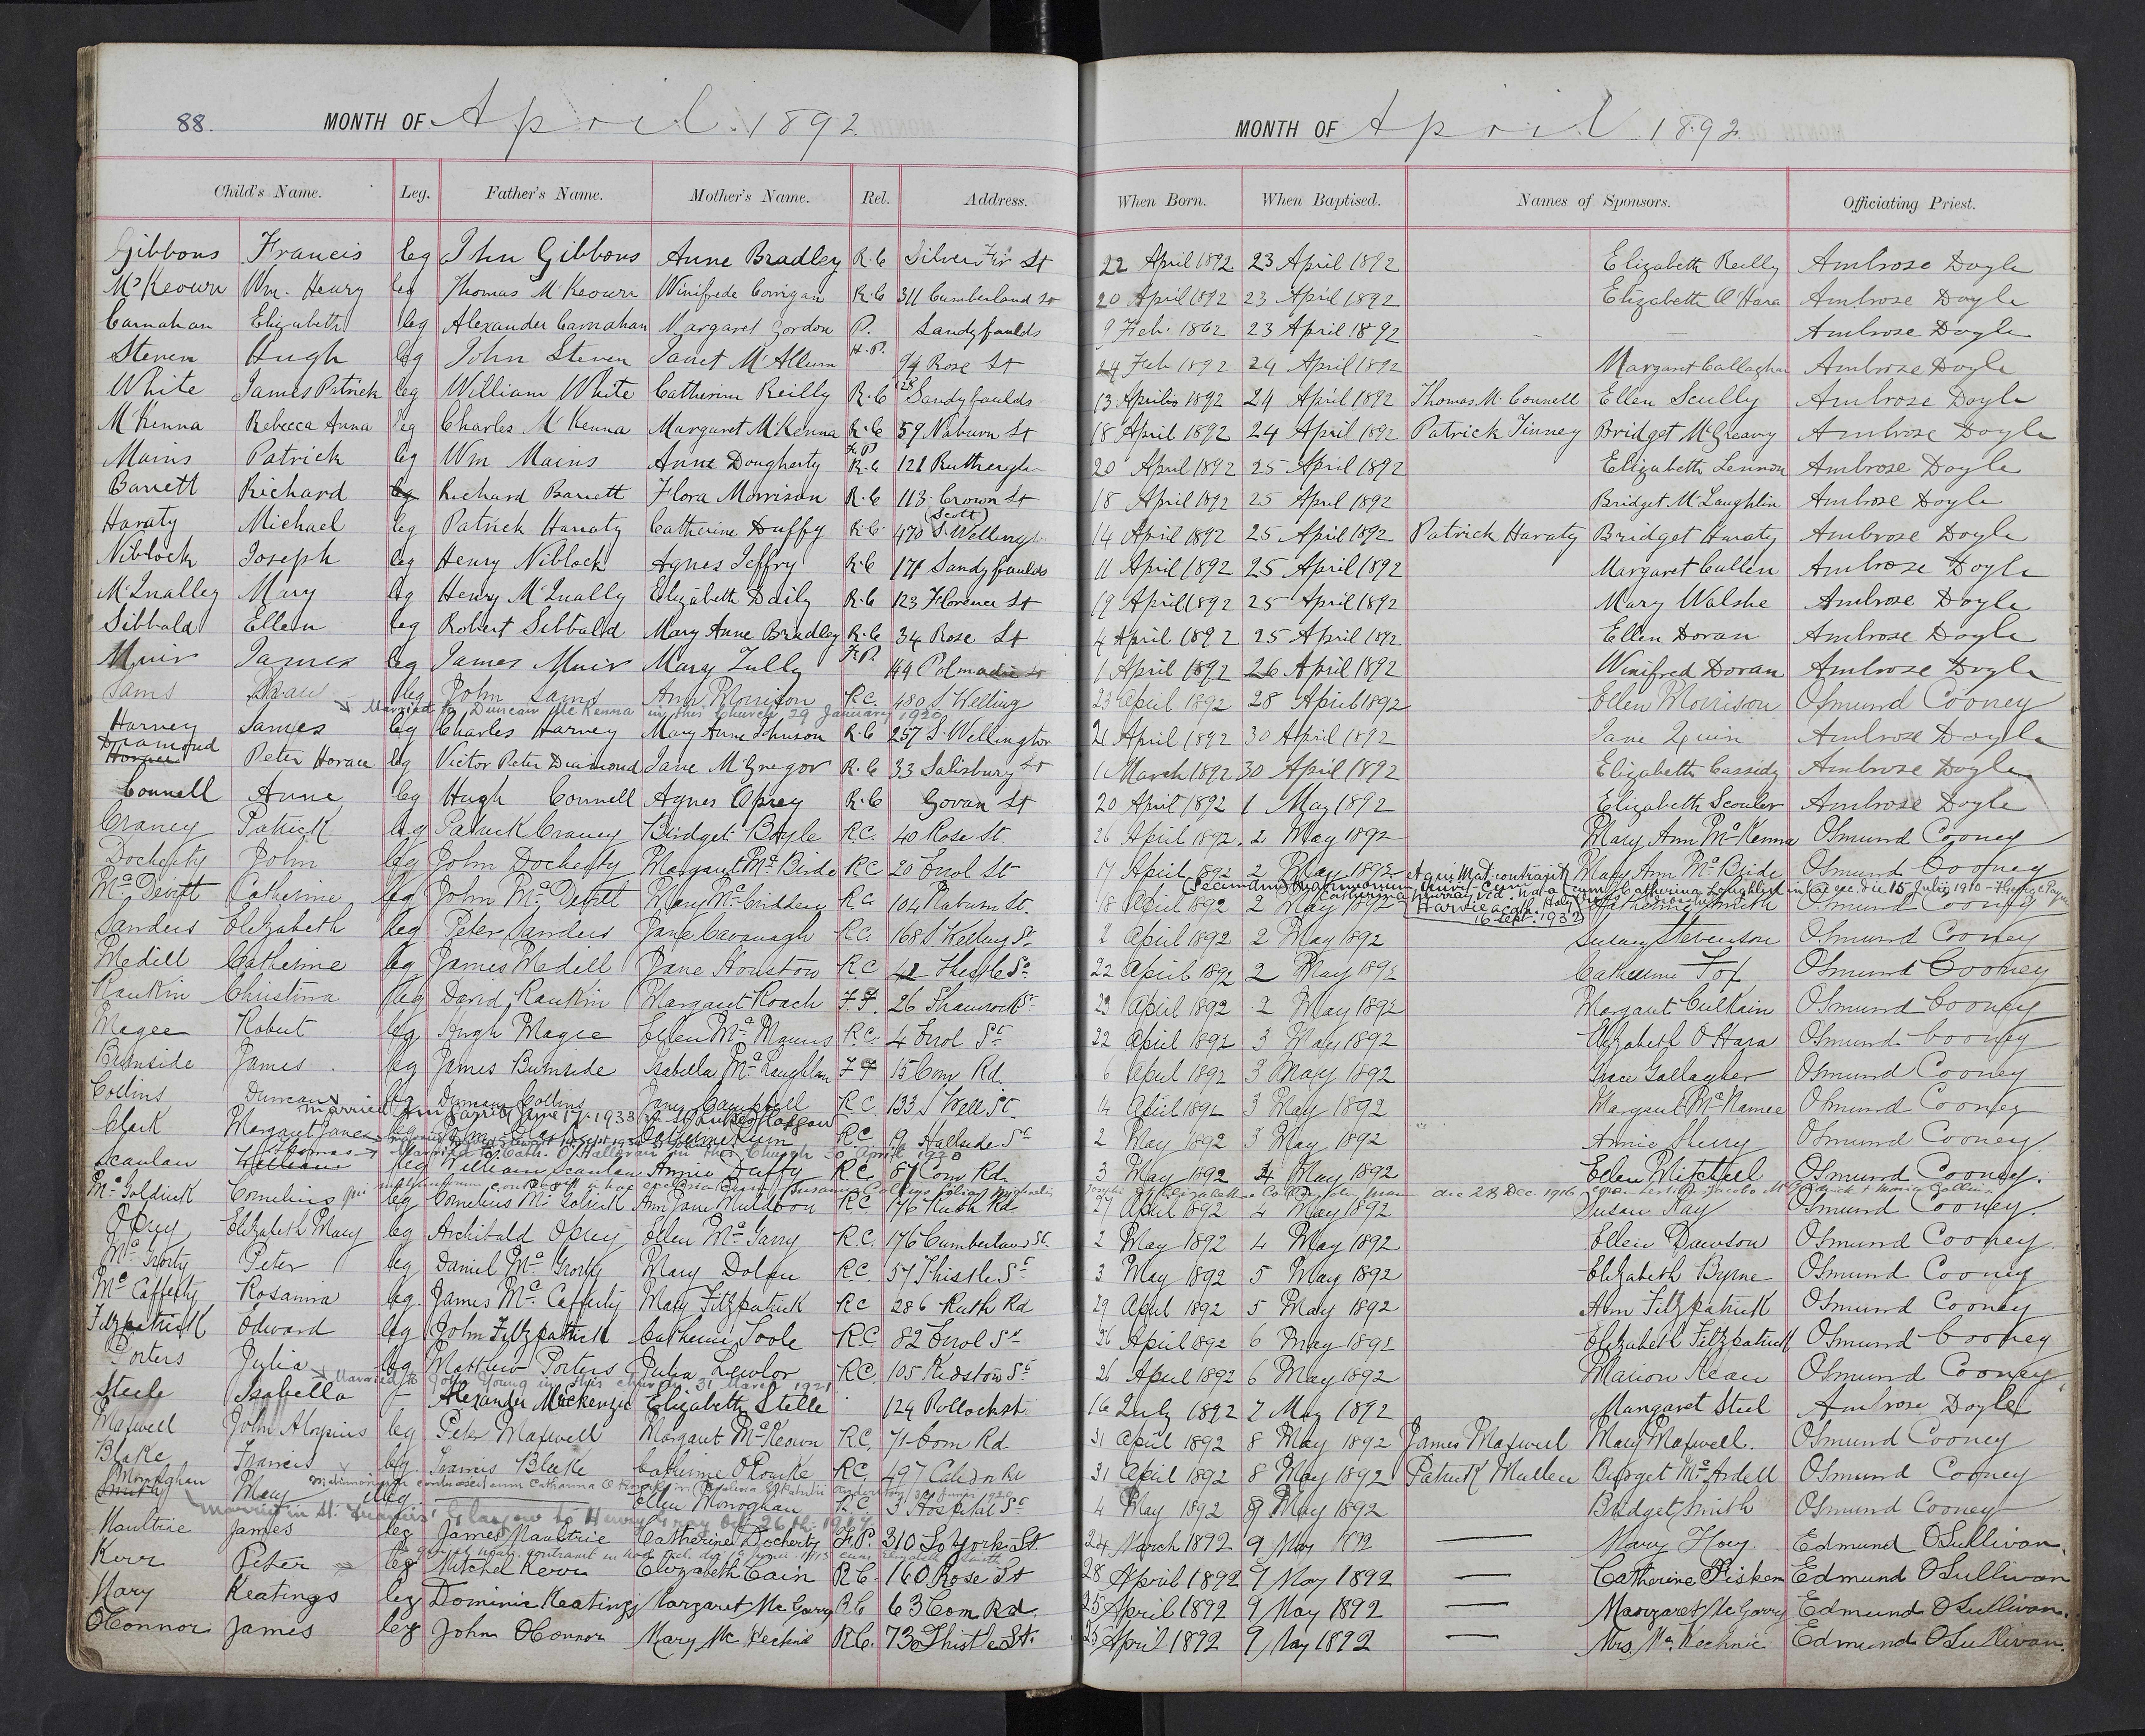 88.
MONTH OF April 1892
MONTH OF April 1892.
Child's Name. Leg. Father's Name. Mother's Name. Rel. Address. When Born. When Baptised. Names of Sponsors. Officiating Priest.
Gibbons Francis leg John Gibbons Anne Bradley R.C Silver Fir St 22 April 1892 23 April 1892 Elizabeth Reilly Ambrose Doyle
McKeown Wm. Henry leg Thomas McKeown Winifrede Corrigan R.C 311 Cumberland St 20 April 1892 23 April 1892 Elizabeth O'Hara Ambrose Doyle
Carnahan Elizabeth leg Alexander Carnahan Margaret Gordon P. Sandyfaulds 9 Feb. 1862 23 April 1892 Ambrose Doyle
Steven Hugh leg John Steven Janet McAllum H.P. 94 Rose St 24 Feb 1892 24 April 1892 Margaret Callaghan Ambrose Doyle
White James Patrick leg William White Catherine Reilly R.C 128 Sandyfaulds 13 April 1892 24 April 1892 Thomas McConnell Ellen Scully Ambrose Doyle
McKenna Rebecca Anna leg Charles McKenna Margaret McKenna R.C 59 Naburn St 18 April 1892 24 April 1892 Patrick Finney Bridget McGreavy Ambrose Doyle
Mains Patrick leg Wm Mains Anne Dougherty R.C 121 Rutherglen 20 April 1892 25 April 1892 Elizabeth Lennon Ambrose Doyle
Barrett Richard leg Richard Barrett Flora Morrison R.C 113 Crown St 18 April 1892 25 April 1892 Bridget McLaughlin Ambrose Doyle
Haraty Michael leg Patrick Haraty Catherine Duffy R.C (Scott) 470 S. Welling 14 April 1892 25 April 1892 Patrick Haraty Bridget Haraty Ambrose Doyle
Niblock Joseph leg Henry Niblock Agnes Jeffry R.C 171 Sandyfaulds 11 April 1892 25 April 1892 Margaret Cullen Ambrose Doyle
McInalley Mary leg Henry McInally Elizabeth Daily R.C 123 Florence St 19 April 1892 25 April 1892 Mary Walshe Ambrose Doyle
Sibbald Ellen leg Robert Sibbald Mary Anne Bradley R.C 34 Rose St 4 April 1892 25 April 1892 Ellen Doran Ambrose Doyle
Muir James leg James Muir Mary Tully F.P. 44 Polmadie St 1 April 1892 26 April 1892 Winifred Doran Ambrose Doyle
Sams leg John Sams Ann Morrison R.C. 480 S Welling 23 April 1892 28 April 1892 Ellen Morrison Osmund Cooney
Married to Duncan McKenna in this Church 29 January 1920
Harvey James leg Charles Harvey Mary Anne Johnson R.C 257 S. Wellington 21 April 1892 30 April 1892 Jane Quin Ambrose Doyle
Diamond Horace Peter Horace leg Victor Peter Diamond Jane McGregor R.C 33 Salisbury St 1 March 1892 30 April 1892 Elizabeth Cassidy Ambrose Doyle
Connell Anne leg Hugh Connell Agnes Oprey R.C Govan St 20 April 1892 1 May 1892 Elizabeth Scouler Ambrose Doyle
Craney Patrick leg Patrick Craney Bridget Boyle R.C. 40 Rose St. 26 April 1892. 2 May 1892 Mary Ann McKenna Osmund Cooney
Docherty John leg John Docherty Margaret McBride R.C 20 Errol St 17 April 1892 2 May 1892 Mary Ann McBride Osmund Cooney
et qui Mat. contraxit cum Catherina Loughlin in hac ecc. die 15 Julii 1910
McDevitt Catherine leg John McDevitt Mary McCrudden R.C. 104 Naburn St. 18 April 1892 2 May 1892 Catherine Smith Osmund Cooney
16 Sept. 1932
Sanders Elizabeth leg Peter Sanders Jane Cavanagh R.C. 168 S Welling St 2 April 1892 2 May 1892 Susan Stevenson Osmund Cooney
Medill Catherine leg James Medill Jane Houston R.C 42 Thistle St 22 April 1892 2 May 1892 Catherine Fox Osmund Cooney
Rankin Christina leg David Rankin Margaret Roach F.F. 26 Shamrock St 23 April 1892 2 May 1892 Margaret Culkain Osmund Cooney
Magee Robert leg Hugh Magee Ellen McManus R.C. 4 Errol St 22 April 1892 3 May 1892 Elizabeth O'Hara Osmund Cooney
Burnside James leg James Burnside Isabella McLaughlan F F 15 Com Rd. 6 April 1892 3 May 1892 Grace Gallagher Osmund Cooney
Collins Duncan leg Duncan Collins Jane Campbell R.C. 133 S Well St. 14 April 1892 3 May 1892 Margaret McNamee Osmund Cooney
Clark Margaret Jane leg R.C. 19 Hallside St 2 May 1892 3 May 1892 Annie Sherry Osmund Cooney
Married to Cath. O'Halloran in this Church 30 April 1920
Scanlan Thomas William leg William Scanlan Annie Duffy R.C 87 Com Rd. 3 May 1892 4 May 1892 Ellen Mitchell Osmund Cooney.
McGoldrick Cornelius leg Cornelius McGolrick Ann Jane Muldoon R.C 176 Ruth Rd 27 April 1892 4 May 1892 Susan Kay Osmund Cooney.
Oprey Elizabeth Mary leg Archibald Oprey Ellen McGarry R.C. 176 Cumberland St. 2 May 1892 4 May 1892 Ellen Dawson Osmund Cooney
McGrorty Peter leg Daniel McGrorty Mary Dolan R.C. 57 Thistle St 3 May 1892 5 May 1892 Elizabeth Byrne Osmund Cooney
McCafferty Rosanna leg James McCafferty Mary Fitzpatrick R.C 286 Ruth Rd 29 April 1892 5 May 1892 Ann Fitzpatrick Osmund Cooney
Fitzpatrick Edward leg John Fitzpatrick Catherine Toole R.C. 82 Errol St 26 April 1892 6 May 1892 Elizabeth Fitzpatrick Osmund Cooney
Porters Julia leg Matthew Porters Julia Lawlor R.C. 105 Kidston St 26 April 1892 6 May 1892 Marion Kean Osmund Cooney
Married to John Young in this church 31 March 1921
Steele Isabella Alexander Mackenzie Elizabeth Stelle 124 Pollock st 16 July 1892 7 May 1892 Margaret Steel Ambrose Doyle
Maxwell John Aloysius leg Peter Maxwell Margaret McKeown R.C. 71 Com Rd 31 April 1892 8 May 1892 James Maxwell Mary Maxwell. Osmund Cooney
Blake Francis leg. Francis Blake Catherine O'Rourke R.C. 497 Caledon Rd 31 April 1892 8 May 1892 Patrick Mullen Bridget McArdell Osmund Cooney
Monaghan Smith Mary Illeg Ellen Monoghan R.C 3 Hospital St 4 May 1892 8 May 1892 Bridget Smith Osmund Cooney
Married in St. Francis' Glasgow to Henry Gray Oct 26th
Naultrie James leg James Naultrie Catherine Docherty F.P. 310 So York St. 24 March 1892 9 May 1892 Mary Hoey Edmund OSullivan.
Kerr Peter leg Mitchel Kerr Elizabeth Cain R.C. 160 Rose St 28 April 1892 9 May 1892 Catherine Pisken Edmund OSullivan
Mary Keatings leg Dominic Keatings Margaret McGarry R.C 63 Com Rd. 25 April 1892 9 May 1892 Margaret McGarry Edmund OSullivan.
OConnor James leg John OConnor Mary McKechnie R.C. 73 Thistle St. 25 April 1892 9 May 1892 Mrs. McKechnie Edmund OSullivan.